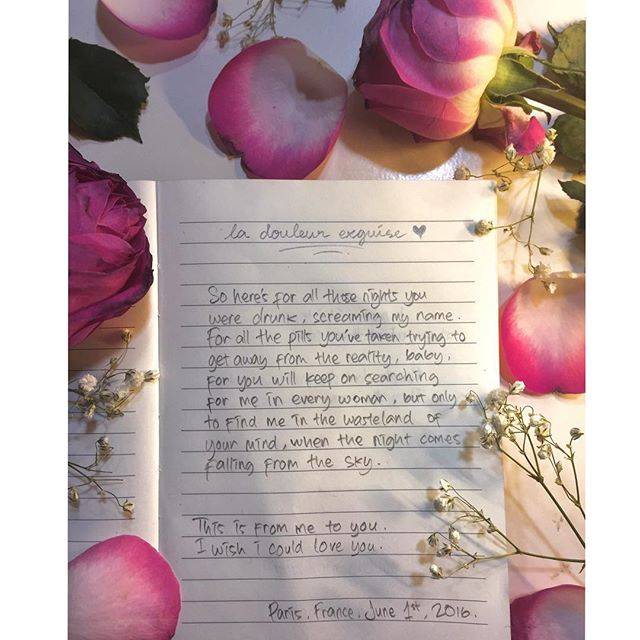 la douleur exquise ♥
So here's for all those nights you
were drunk, screaming my name.
For all the pills you've taken trying to
get away from the reality, baby,
for you will keep on searching
for me in every woman, but only
to find me in the wasteland of
your mind, when the night comes
falling from the sky.
This is from me to you.
I wish i could love you.
Paris, France, June 1st, 2016.